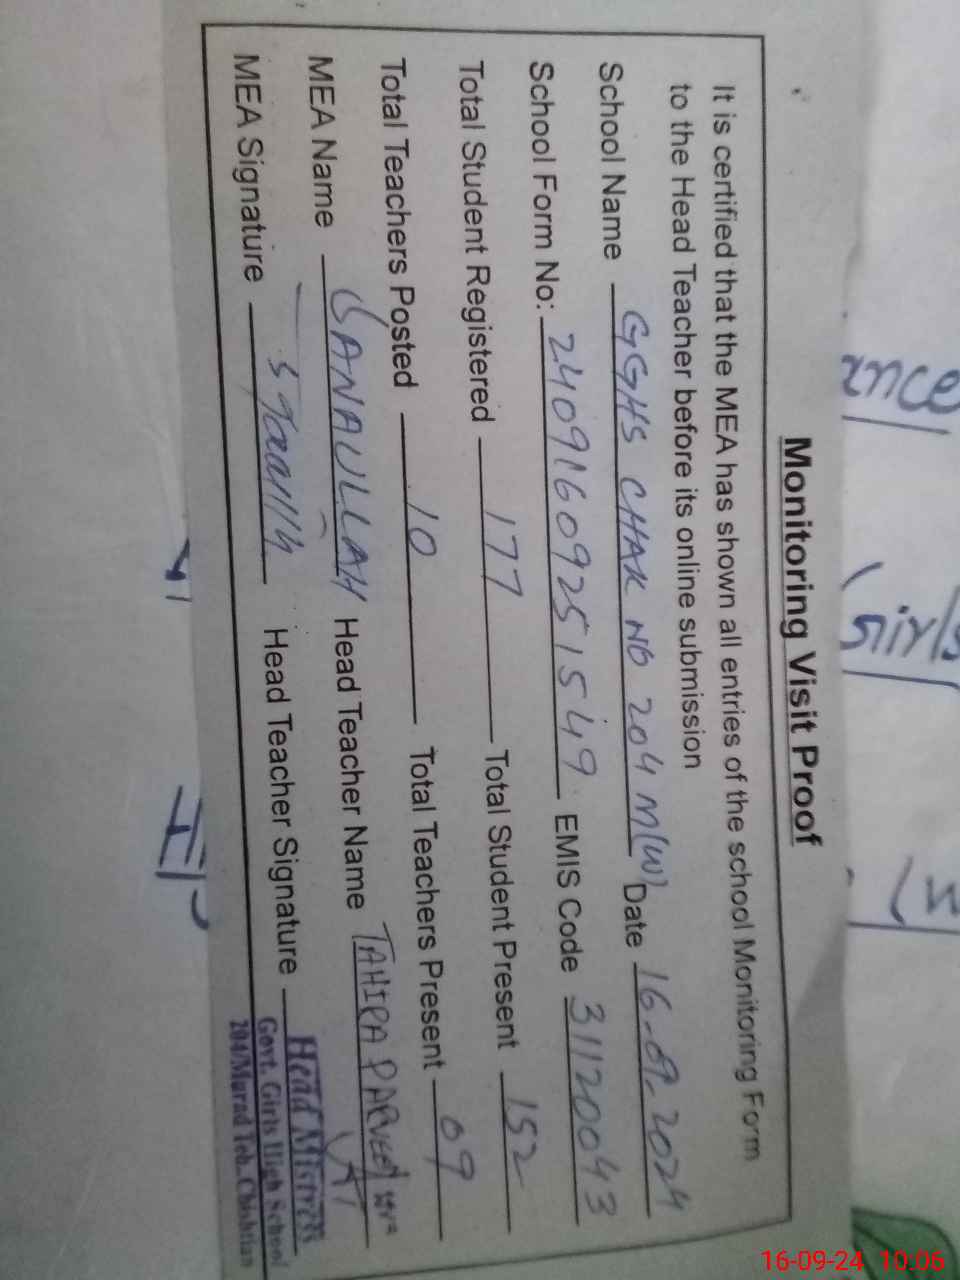 Monitoring Visit Proof
It is certified that the MEA has shown all entries of the school Monitoring Form
to the Head Teacher before its online submission
School Name GGHS CHAK NO 204 M(W) Date 16-09-2024
School Form No: 24091609251549 EMIS Code 31120043
Total Student Registered 177 Total Student Present 152
Total Teachers Posted 10 Total Teachers Present 09
MEA Name SANAULLAH Head Teacher Name TAHIRA PARVEEN
MEA Signature Head Teacher Signature
Head Mistress
Govt. Girls High School
204/Murad Teh. Chishtian
ance
Girls
16-09-24 10:06